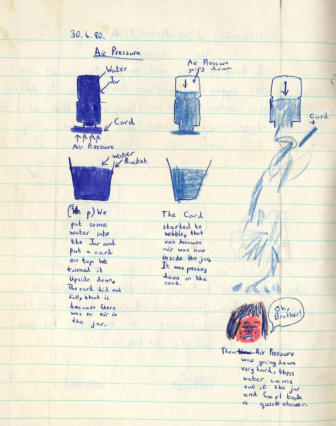 30.6.80.
Air Pressure
Water
Jar
Card
Air Pressure
Water
Bucket
Air Pressure
going down.
Card
We
put some
water into
the Jar and
put a card
on top We
turned it
Upside down,
The card did not
fall, that is
because there
was no air in
the jar.
The Card
started to
wobble, that
was because
air was now
inside the jar,
It was pressing
down on the
card.
Oh,
Brother!
Then Air Pressure
was going down
very hard, then
water came
out of the jar
and Carl took
a quick shower.